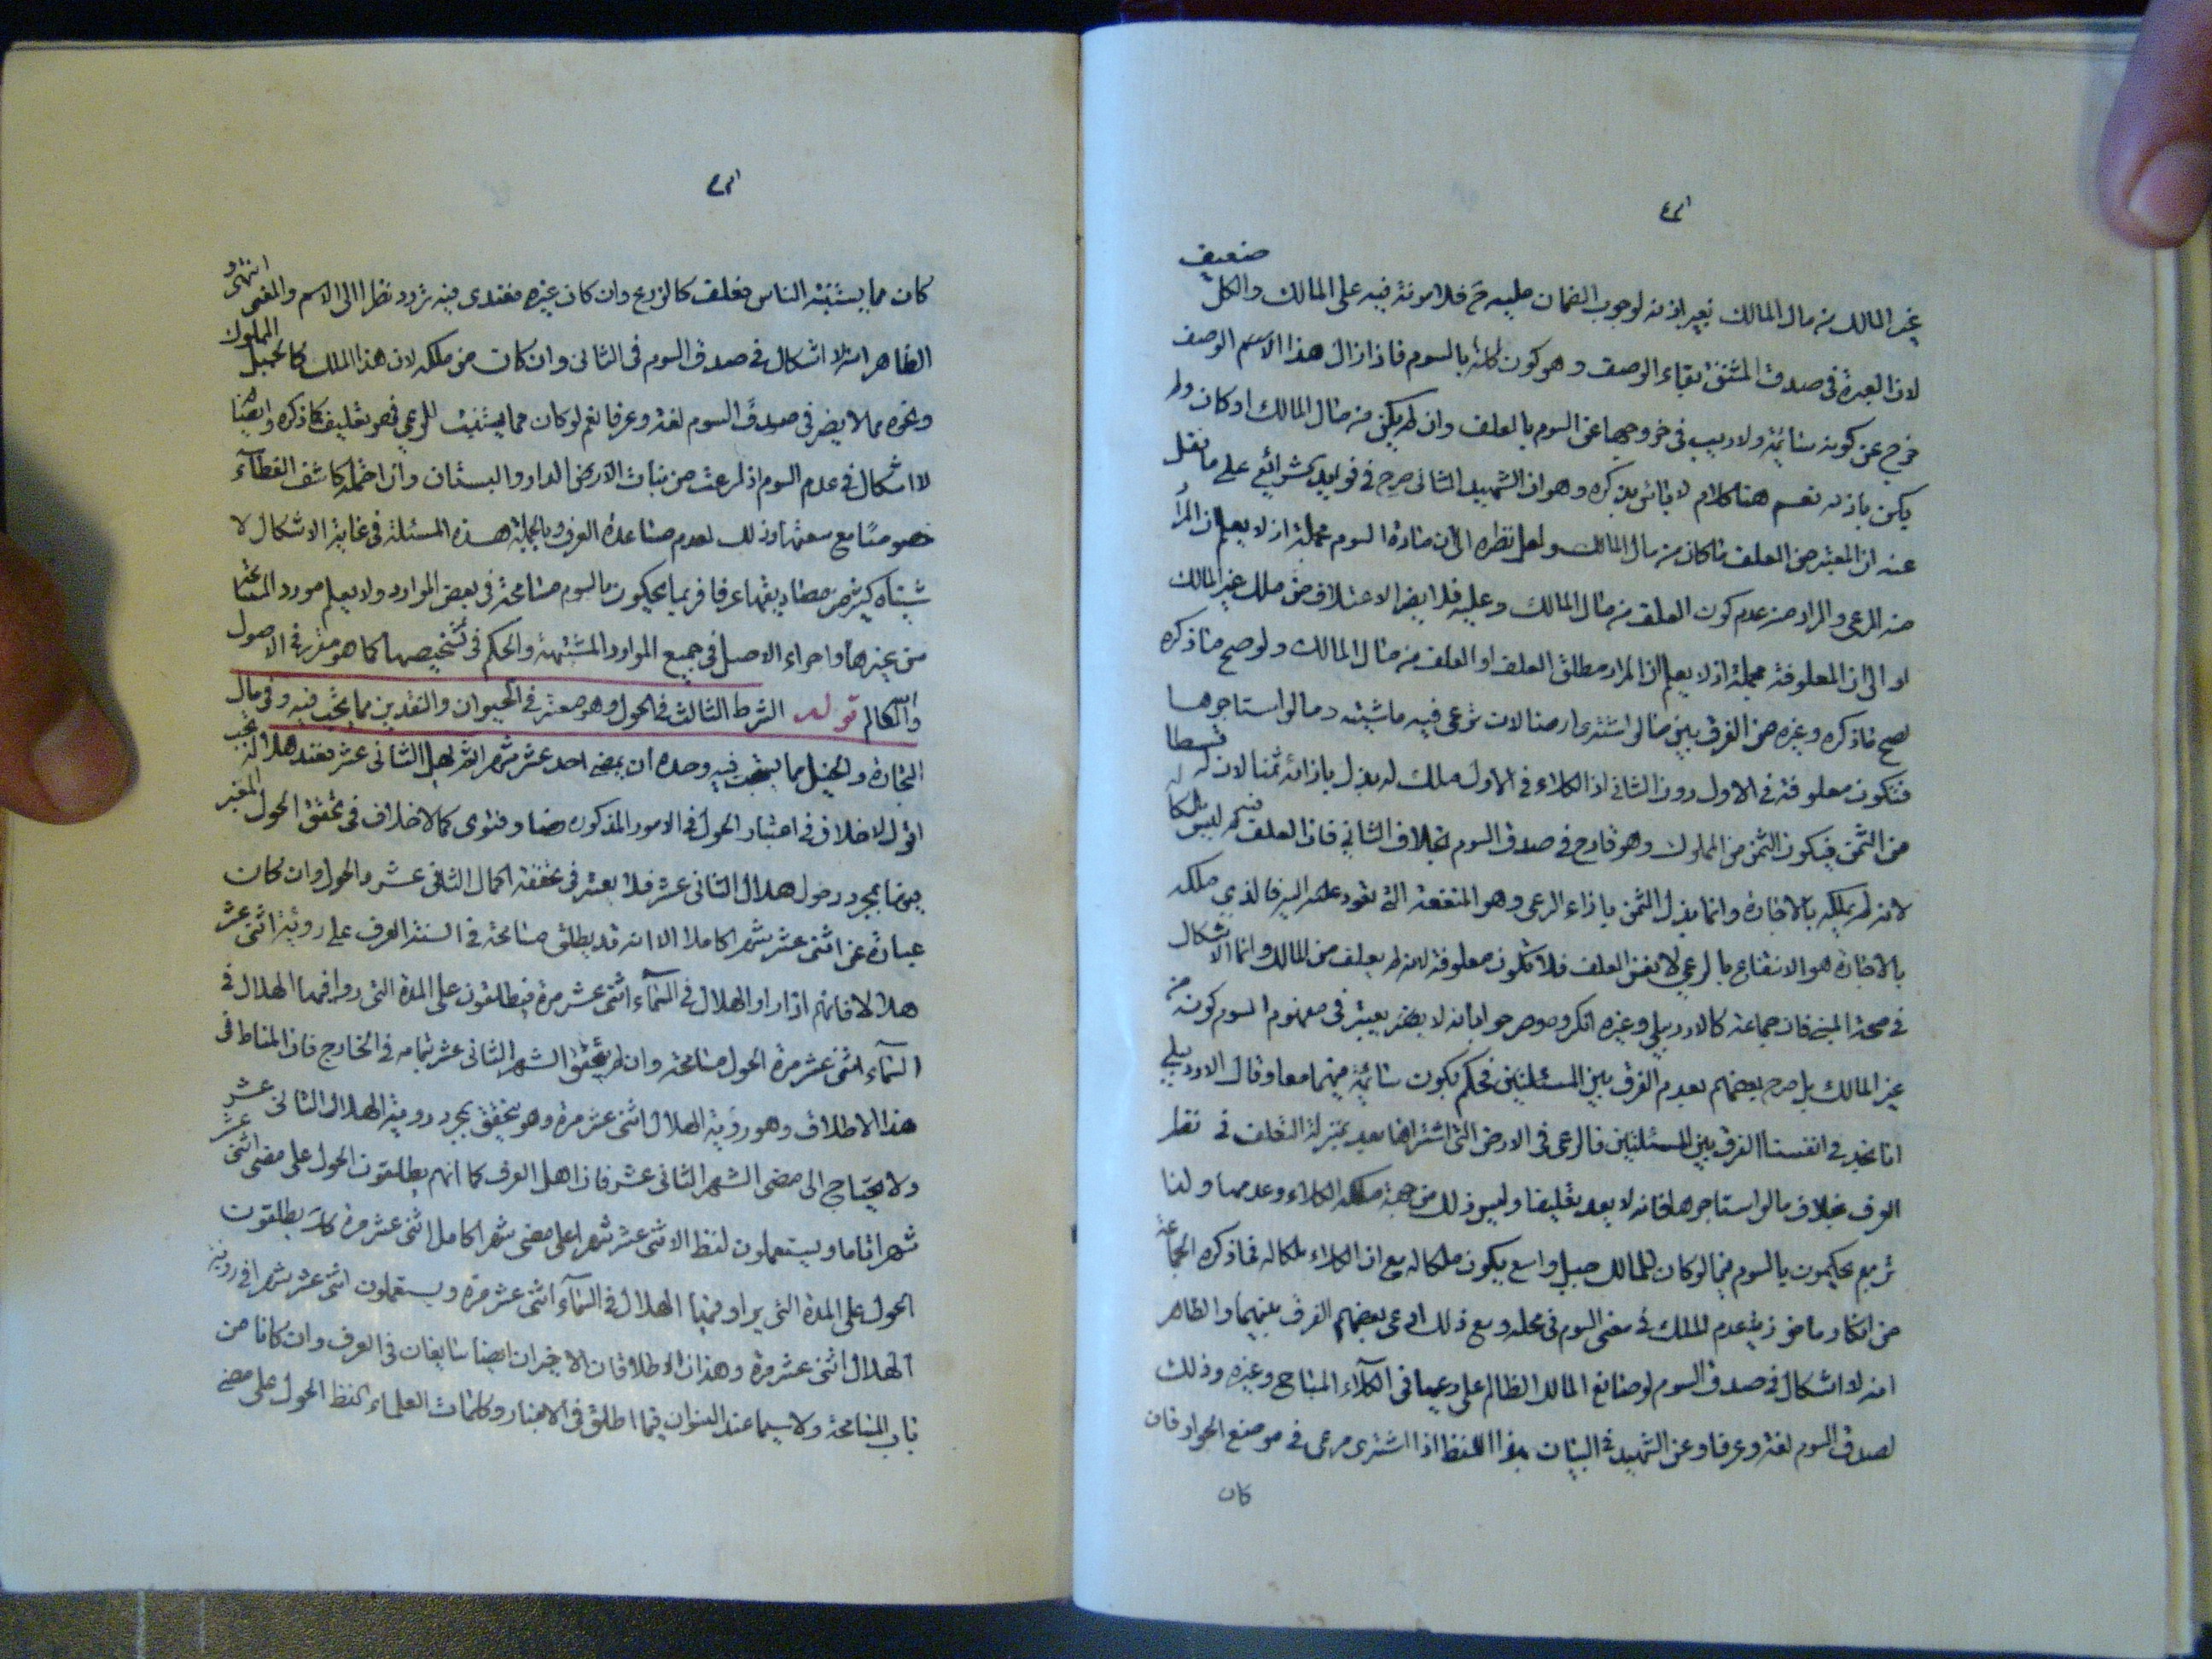 غير المالك من مال المالك بغير اذنه لوجوب الضمان عليه ح فلا مونة فيه على المالك والكل ضعيف
لان العبرة فى صدق المشتق بقاء الوصف وهو كون بالسوم فاذا زال هذا الاسم الوصف
خرج عن كونه سائمة ولا ريب فى خروجها عن السوم بالعلف وان لم يكن من مال المالك او كان ولم
يكن باذنه نعم هنا كلام لا باس بذكره وهو ان الشهيد الثانى صرح فى فوايد الشرائع على ما نقل
عنه ان المعتبر من العلف ما كان من مال المالك ولعل نظره الى ان مادة السوم مجملة اذ لا يعلم ان المراد
منه الرعى والمراد من عدم كون العلف من مال المالك وعليه فلا يضر الاعتلاف من ملك غير المالك
او الى ان المعلوفة مجملة اذ لا يعلم ان المراد مطلق العلف او العلف من مال المالك ولو صح ما ذكره
لصح ما ذكره وغيره من الفرق بين ما لو اشترى ارضا لان ترعى فيه ماشيته وما لو استاجرها
فتكون معلوفة فى الاول دون الثانى اذ الكلاء فى الاول ملك له بذل بازائه ثمنا لان له قسطا
من الثمن فيكون الثمن من المملوك وهو قادح فى صدق السوم بخلاف الثانى فان العلف فيه ليس ملكا له
لانه لم يملكه بالاجارة وانما بذل الثمن بازاء الرعى وهو المنفعة التى تعود اليه فالذى ملكه
بالاجارة هو الانتفاع بالرعى لا نفس العلف فلا تكون معلوفة لانه لم يعلف من المالك وانما الاشكال
فى صحة المبنى فان جماعة كالاردبيلى وغيره انكروه وصرحوا بانه لا يعتبر فى مفهوم السوم كونه من
غير المالك بل صرح بعضهم بعدم الفرق بين المسئلتين فحكم بكون سائمة فيهما معا وقال الاردبيلى
انا نجد فى انفسنا الفرق بين المسئلتين فالرعى فى الارض التى اشتراها يعد بمنزلة التعلف فى نظر
العرف بخلاف ما لو استاجرها فانه لا يعد تعليفا وليس ذلك من جهة ملكه الكلاء وعدمها ولذا
تريهم يحكمون بالسوم فيما لو كان للمالك جبل واسع يكون ملكا له مع ان الكلاء ملكا له فما ذكره الجماعة
من انكار ماخوذية عدم الملك فى معنى السوم فى محله ومع ذلك ادعى بعضهم الفرق بينهما والظاهر
انه لا اشكال فى صدق السوم لو صانع المالك الظالم على رعيها فى الكلاء المباح وغيره وذلك
لصدق السوم لغة وعرفا وعن الشهيد فى البيان بهذا اللفظ اذا اشترى مرعى فى موضع الجواز فان
كان
كان مما يستنبته الناس فعلف كالزرع وان كان غيره فعندى فيه تردد نظرا الى الاسم والمعنى انتهى و
الظاهر انه لا اشكال فى صدق السوم فى الثانى وان كان من ملكه لان هذا الملك كالجبل المملوك
ونحوه مما لا يضر فى صدق السوم لغة وعرفا نعم لو كان مما يستنبت للرعى فهو تعليف كما ذكره وايضا
لا اشكال فى عدم السوم اذا رعت من نبات الارض الدار والبستان وان احتمله كاشف الغطآء
خصوصا مع سعتها وذلك لعدم مساعدة العرف وبالجملة هذه المسئلة فى غاية الاشكال لا
شتباه كثير من مصاديقها عرفا فربما يحكون بالسوم مسامحة فى بعض الموارد ولا يعلم مورد المسامحة
من غيرها واجراء الاصل فى جميع الموارد المشتبهة والحكم فى تشخيصها كما هو مقرر فى الاصول
والله العالم قوله الشرط الثالث فى الحول وهو معتبر فى الحيوان والنقدين مما يجب فيه وفى مال
التجارة والخيل مما يستحب فيه وحده ان يمضى احد عشر شهرا ثم يهل الثانى عشر فعند هلاله يجب
اقول لا خلاف فى اعتبار الحول فى الامور المذكوره نصا وفتوى كما لا خلاف فى تحقق الحول المعتبر
بمجرد دخول هلال الثانى عشر فلا يعتبر فى تحققه اكمال الثانى عشر والحول وان كان
عبارة عن اثنى عشر شهرا كاملا الا انه قد يطلق مسامحة فى السنة العرف على روية اثنى عشر
هلالا فانهم اذا راوا الهلال فى السمآء اثنى عشر مرة فيطلقون على المدة التى راوا فيها الهلال فى
السمآء اثنى عشر مرة الحول مسامحة وان لم يتحقق الشهر الثانى عشر بتمامه فى الخارج فان المناط فى
هذا الاطلاق وهو رؤية الهلال اثنى عشر مرة وهو يتحقق بمجرد روية الهلال الثانى عشر
ولا يحتاج الى مضى الشهر الثانى عشر فان اهل العرف كما انهم يطلقون الحول على مضى اثنى عشر
شهرا تاما ويستعملون لفظ الاثنى عشر شهرا على مضى شهر كامل اثنى عشر مرة كك يطلقون
الحول على المدة التى يراو فيها الهلال فى السمآء اثنى عشر مرة ويستعملون اثنى عشر شهرا فى روية
الهلال اثنى عشر مرة وهذان الاطلاقان الاخيران ايضا شايعان فى العرف وان كانا من
باب المسامحة ولا سيما عند فيما اطلق فى الاخبار وكلمات العلماء لفظ الحول على مضى